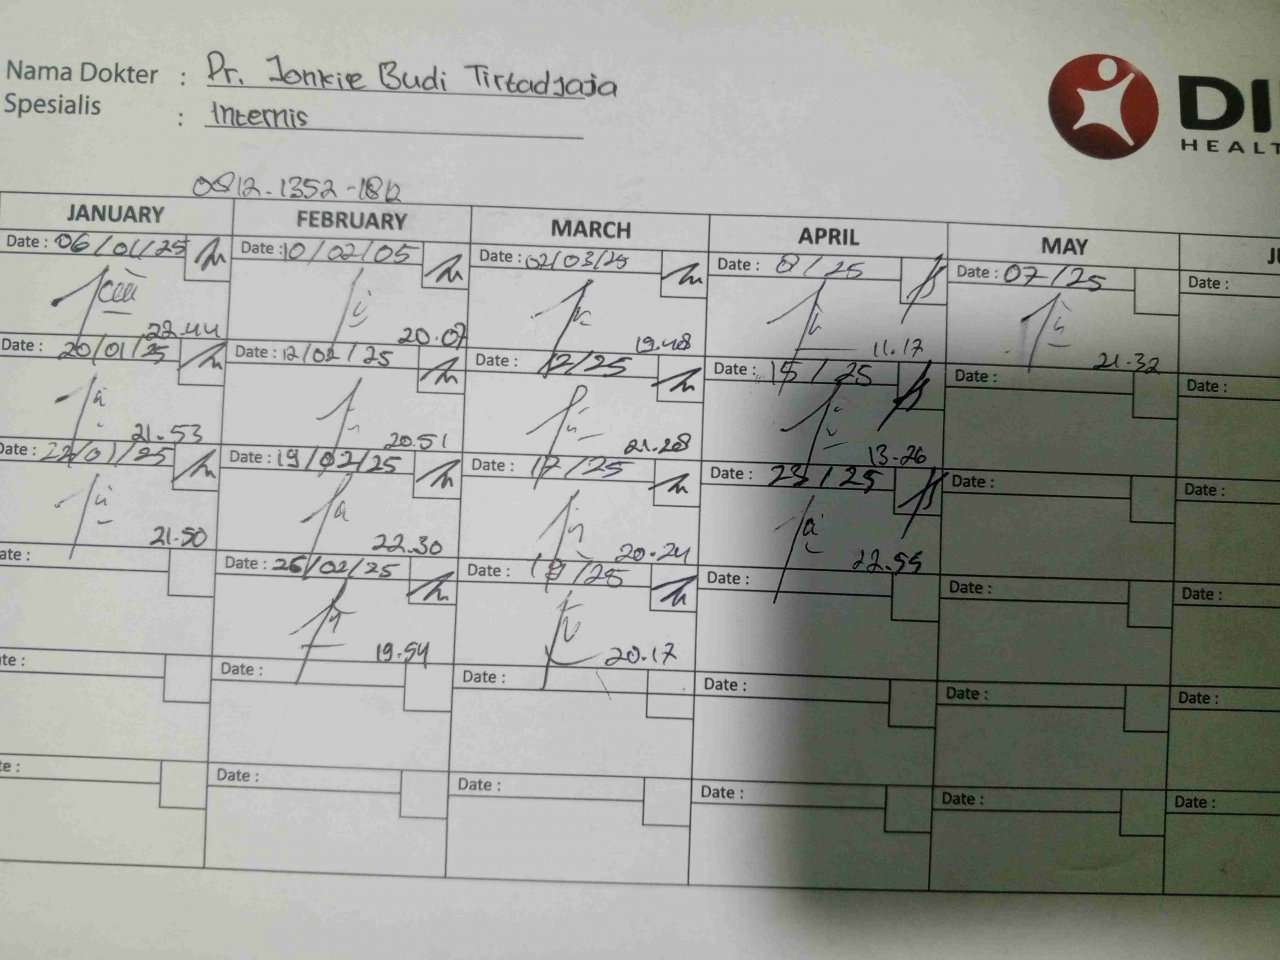 Nama Dokter : Dr. Jonkie Budi Tirtadjaja
Spesialis : Internis
DI
HEALT
0812.1352-1812
JANUARY FEBRUARY MARCH APRIL MAY JU
Date : 06/01/25 Date : 10/02/05 Date : 02/03/25 Date : 8/25 Date : 07/25 Date :
22.44 20.07 19.48 11.17 21.32
Date : 20/01/25 Date : 12/02/25 12/25 Date : 15/25 Date : Date :
21.53 20.51 21.28 13.26
Date : 22/01/25 Date : 19/02/25 Date : 17/25 Date : 23/25 Date : Date :
21.50 22.30 20.24 22.55
ate : Date : 26/02/25 Date : 19/25 Date : Date : Date :
19.54 20.17
te : Date : Date : Date : Date : Date :
e : Date : Date : Date : Date : Date :